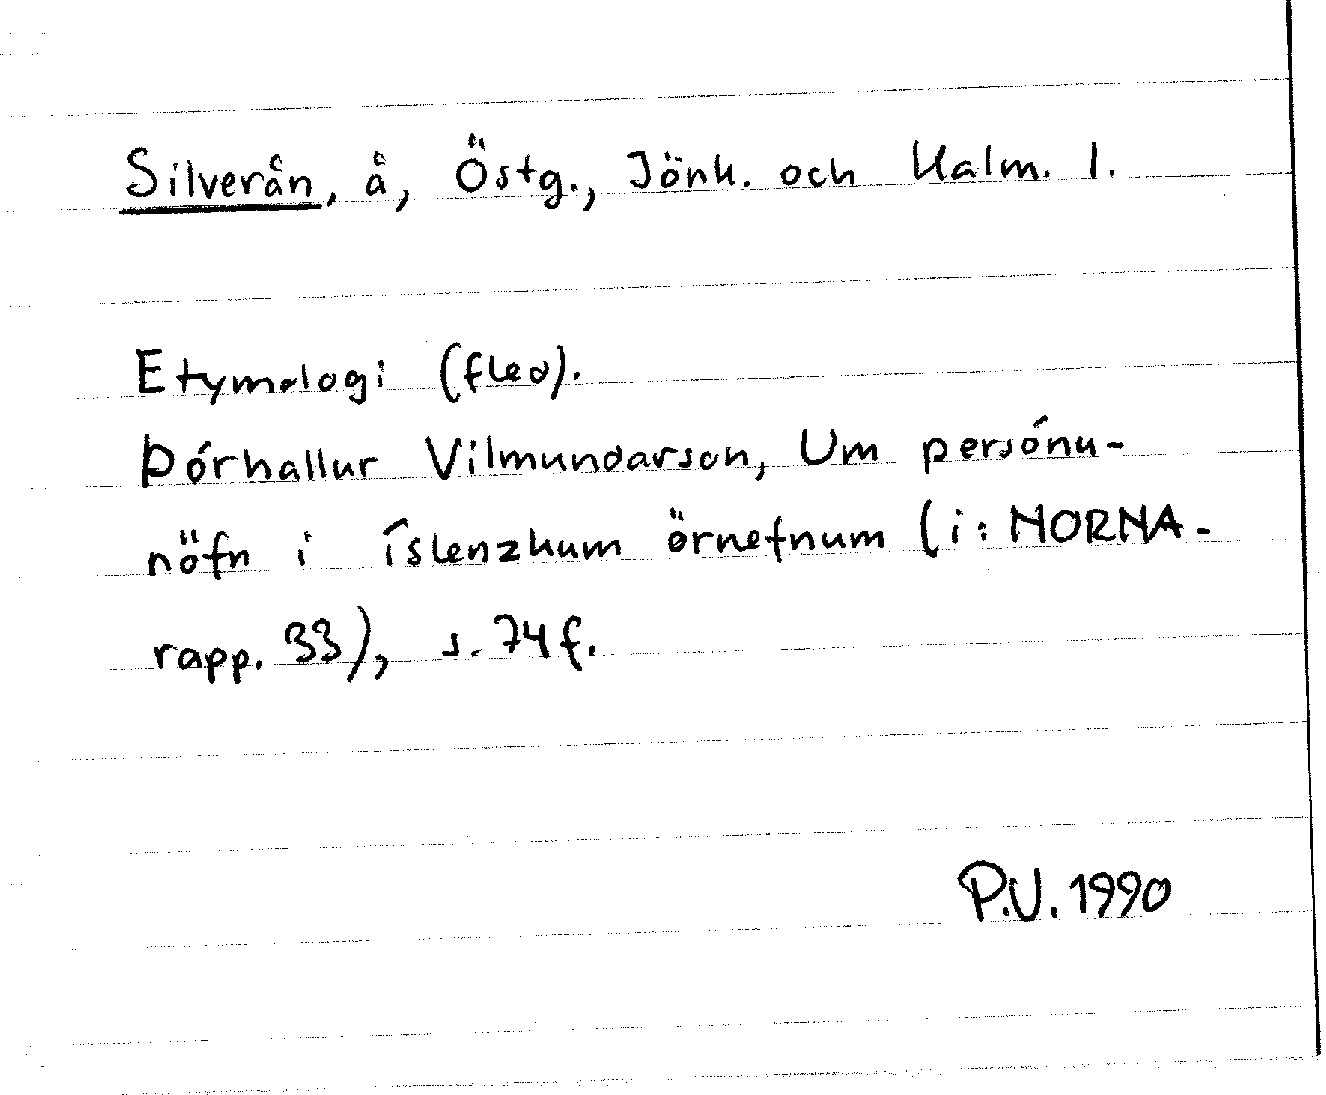 Silverån, å, Östg., Jönk. och Kalm. l.
Etymologi (fled).
Þórhallur Vilmundarson, Um persónu-
nöfn i íslenzkum örnefnum (i: NORNA-
rapp. 33), s. 74 f.
P.V. 1990